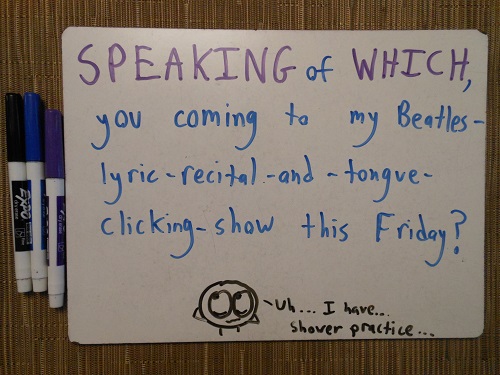 SPEAKING of WHICH,
you coming to my Beatles-
lyric-recital-and-tongue-
clicking-show this Friday?
Uh... I have...
shover practice...
EXPO
EXPO